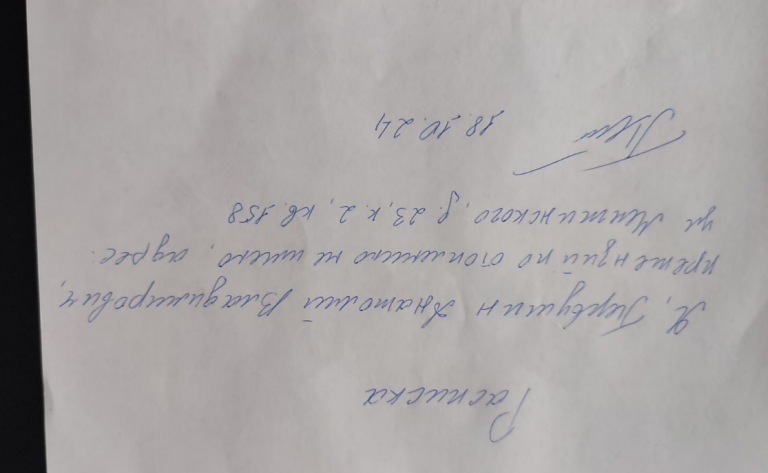 Расписка
Я, Первушин Анатолий Владимирович,
претензий по отоплению не имею, адрес:
ул Мытинского, д. 23, к. 2, кв. 158
18.10.24